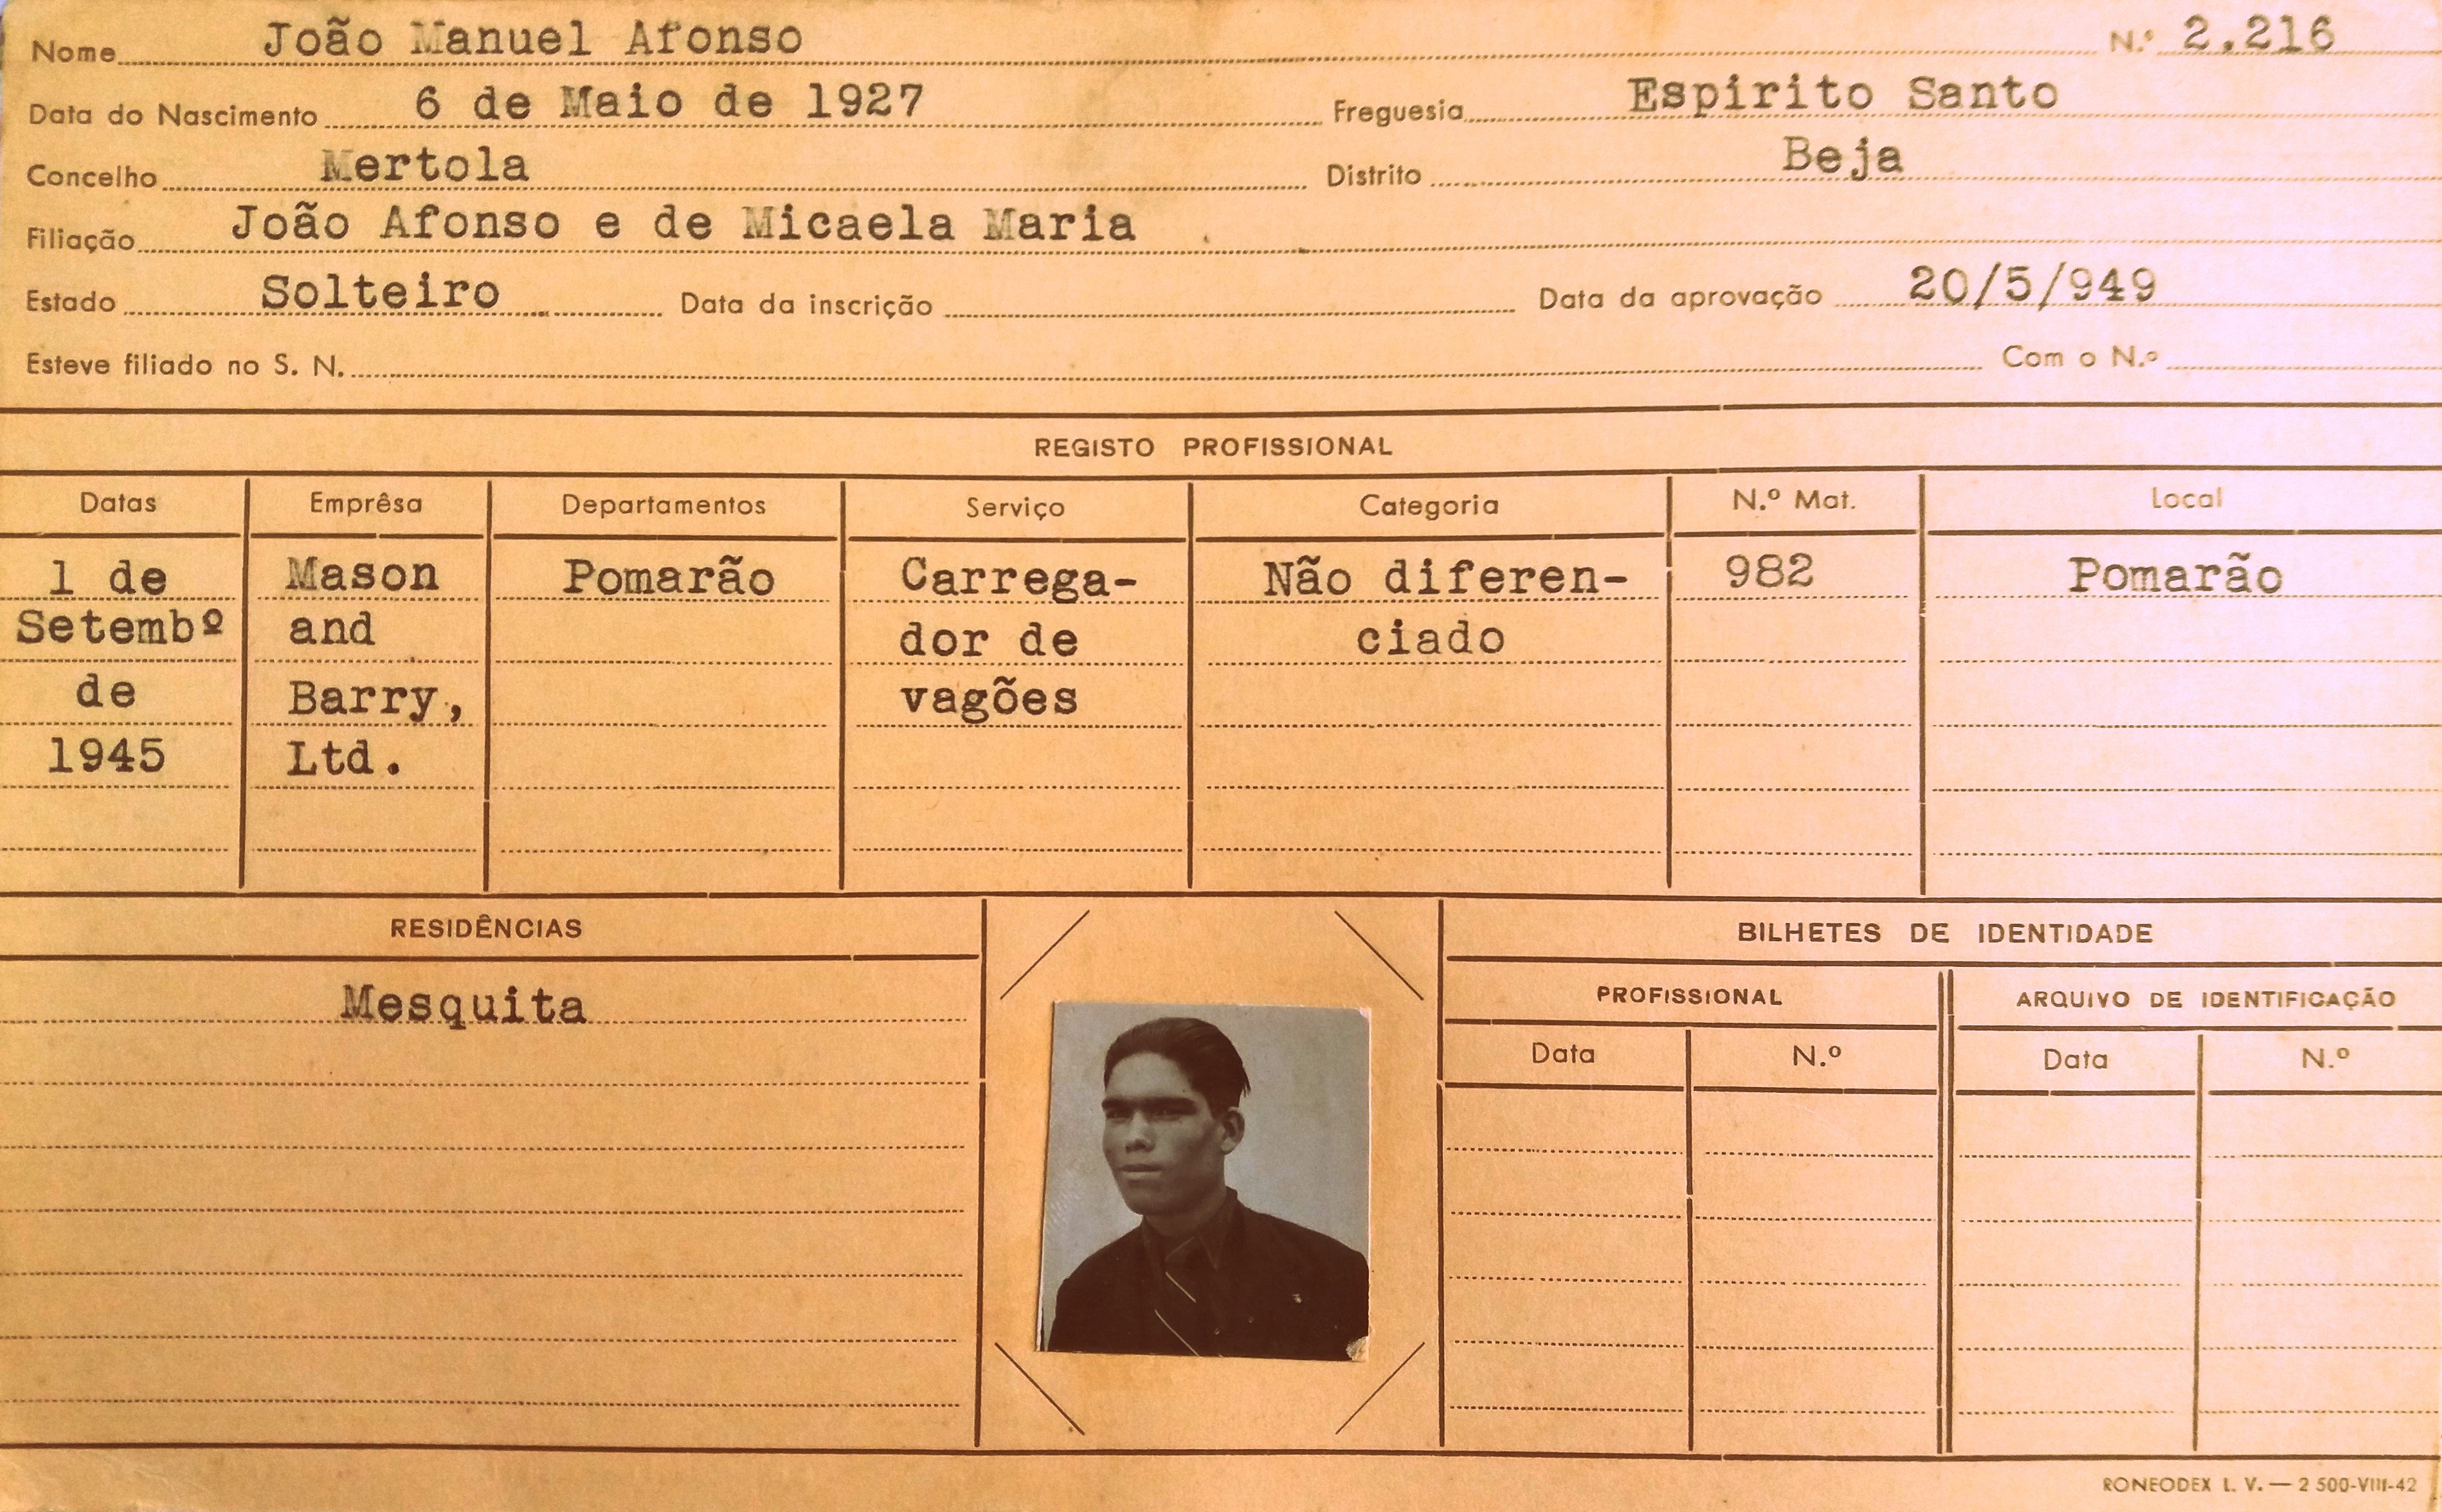 Nome João Manuel Afonso N.º 2.216
Data do Nascimento 6 de Maio de 1927 Freguesia Espirito Santo
Concelho Mertola Distrito Beja
Filiação João Afonso e de Micaela Maria
Estado Solteiro Data da inscrição Data da aprovação 20/5/949
Esteve filiado no S. N. Com o N.º
REGISTO PROFISSIONAL
Datas Emprêsa Departamentos Serviço Categoria N.º Mat. Local
1 de Mason Pomarão Carrega- Não diferen- 982 Pomarão
Setembº and dor de ciado
de Barry, vagões
1945 Ltd.
RESIDÊNCIAS BILHETES DE IDENTIDADE
Mesquita PROFISSIONAL ARQUIVO DE IDENTIFICAÇÃO
Data N.º Data N.º
RONEODEX L. V. — 2 500-VIII-42